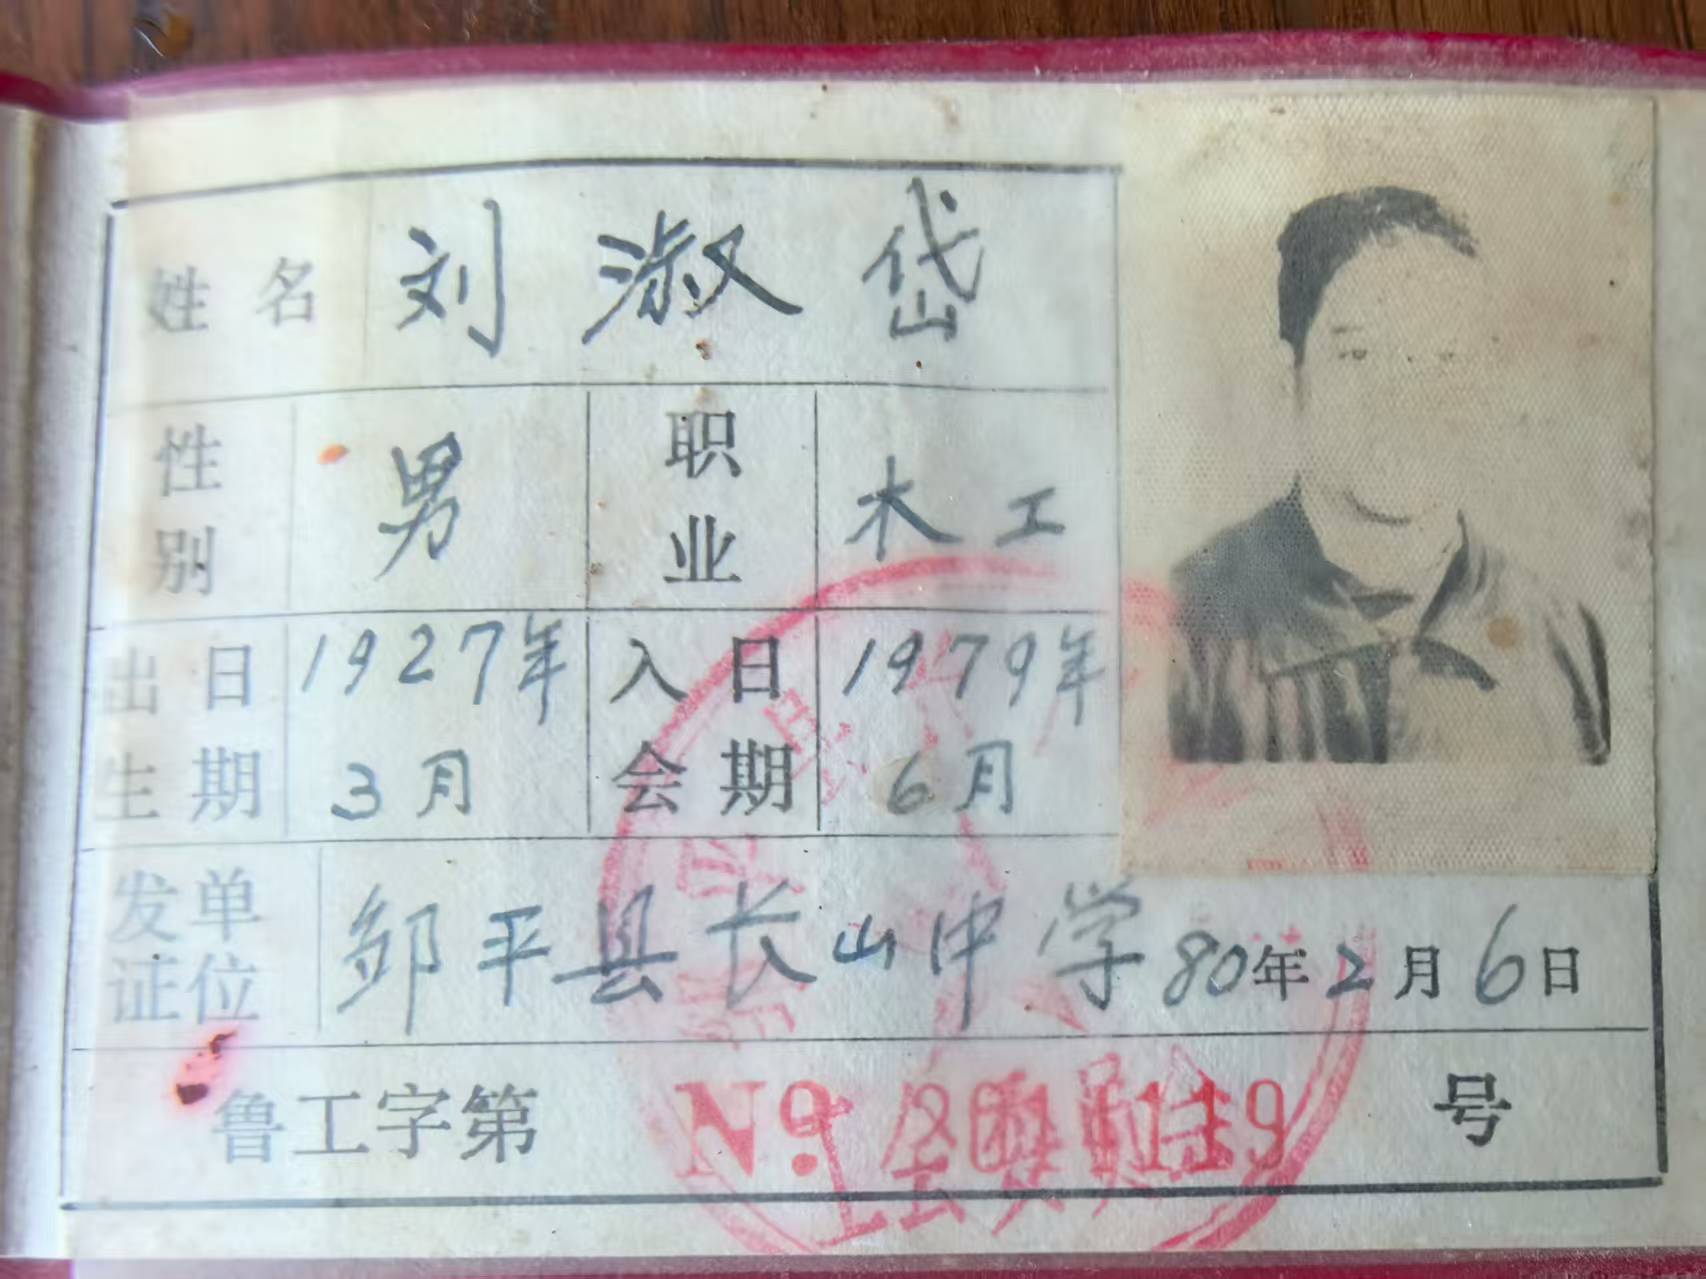 姓名 刘淑岱
性别 男 职业 木工
出生日期 1927年3月 入会日期 1979年6月
发证单位 邹平县长山中学 80年2月6日
鲁工字第 No 号